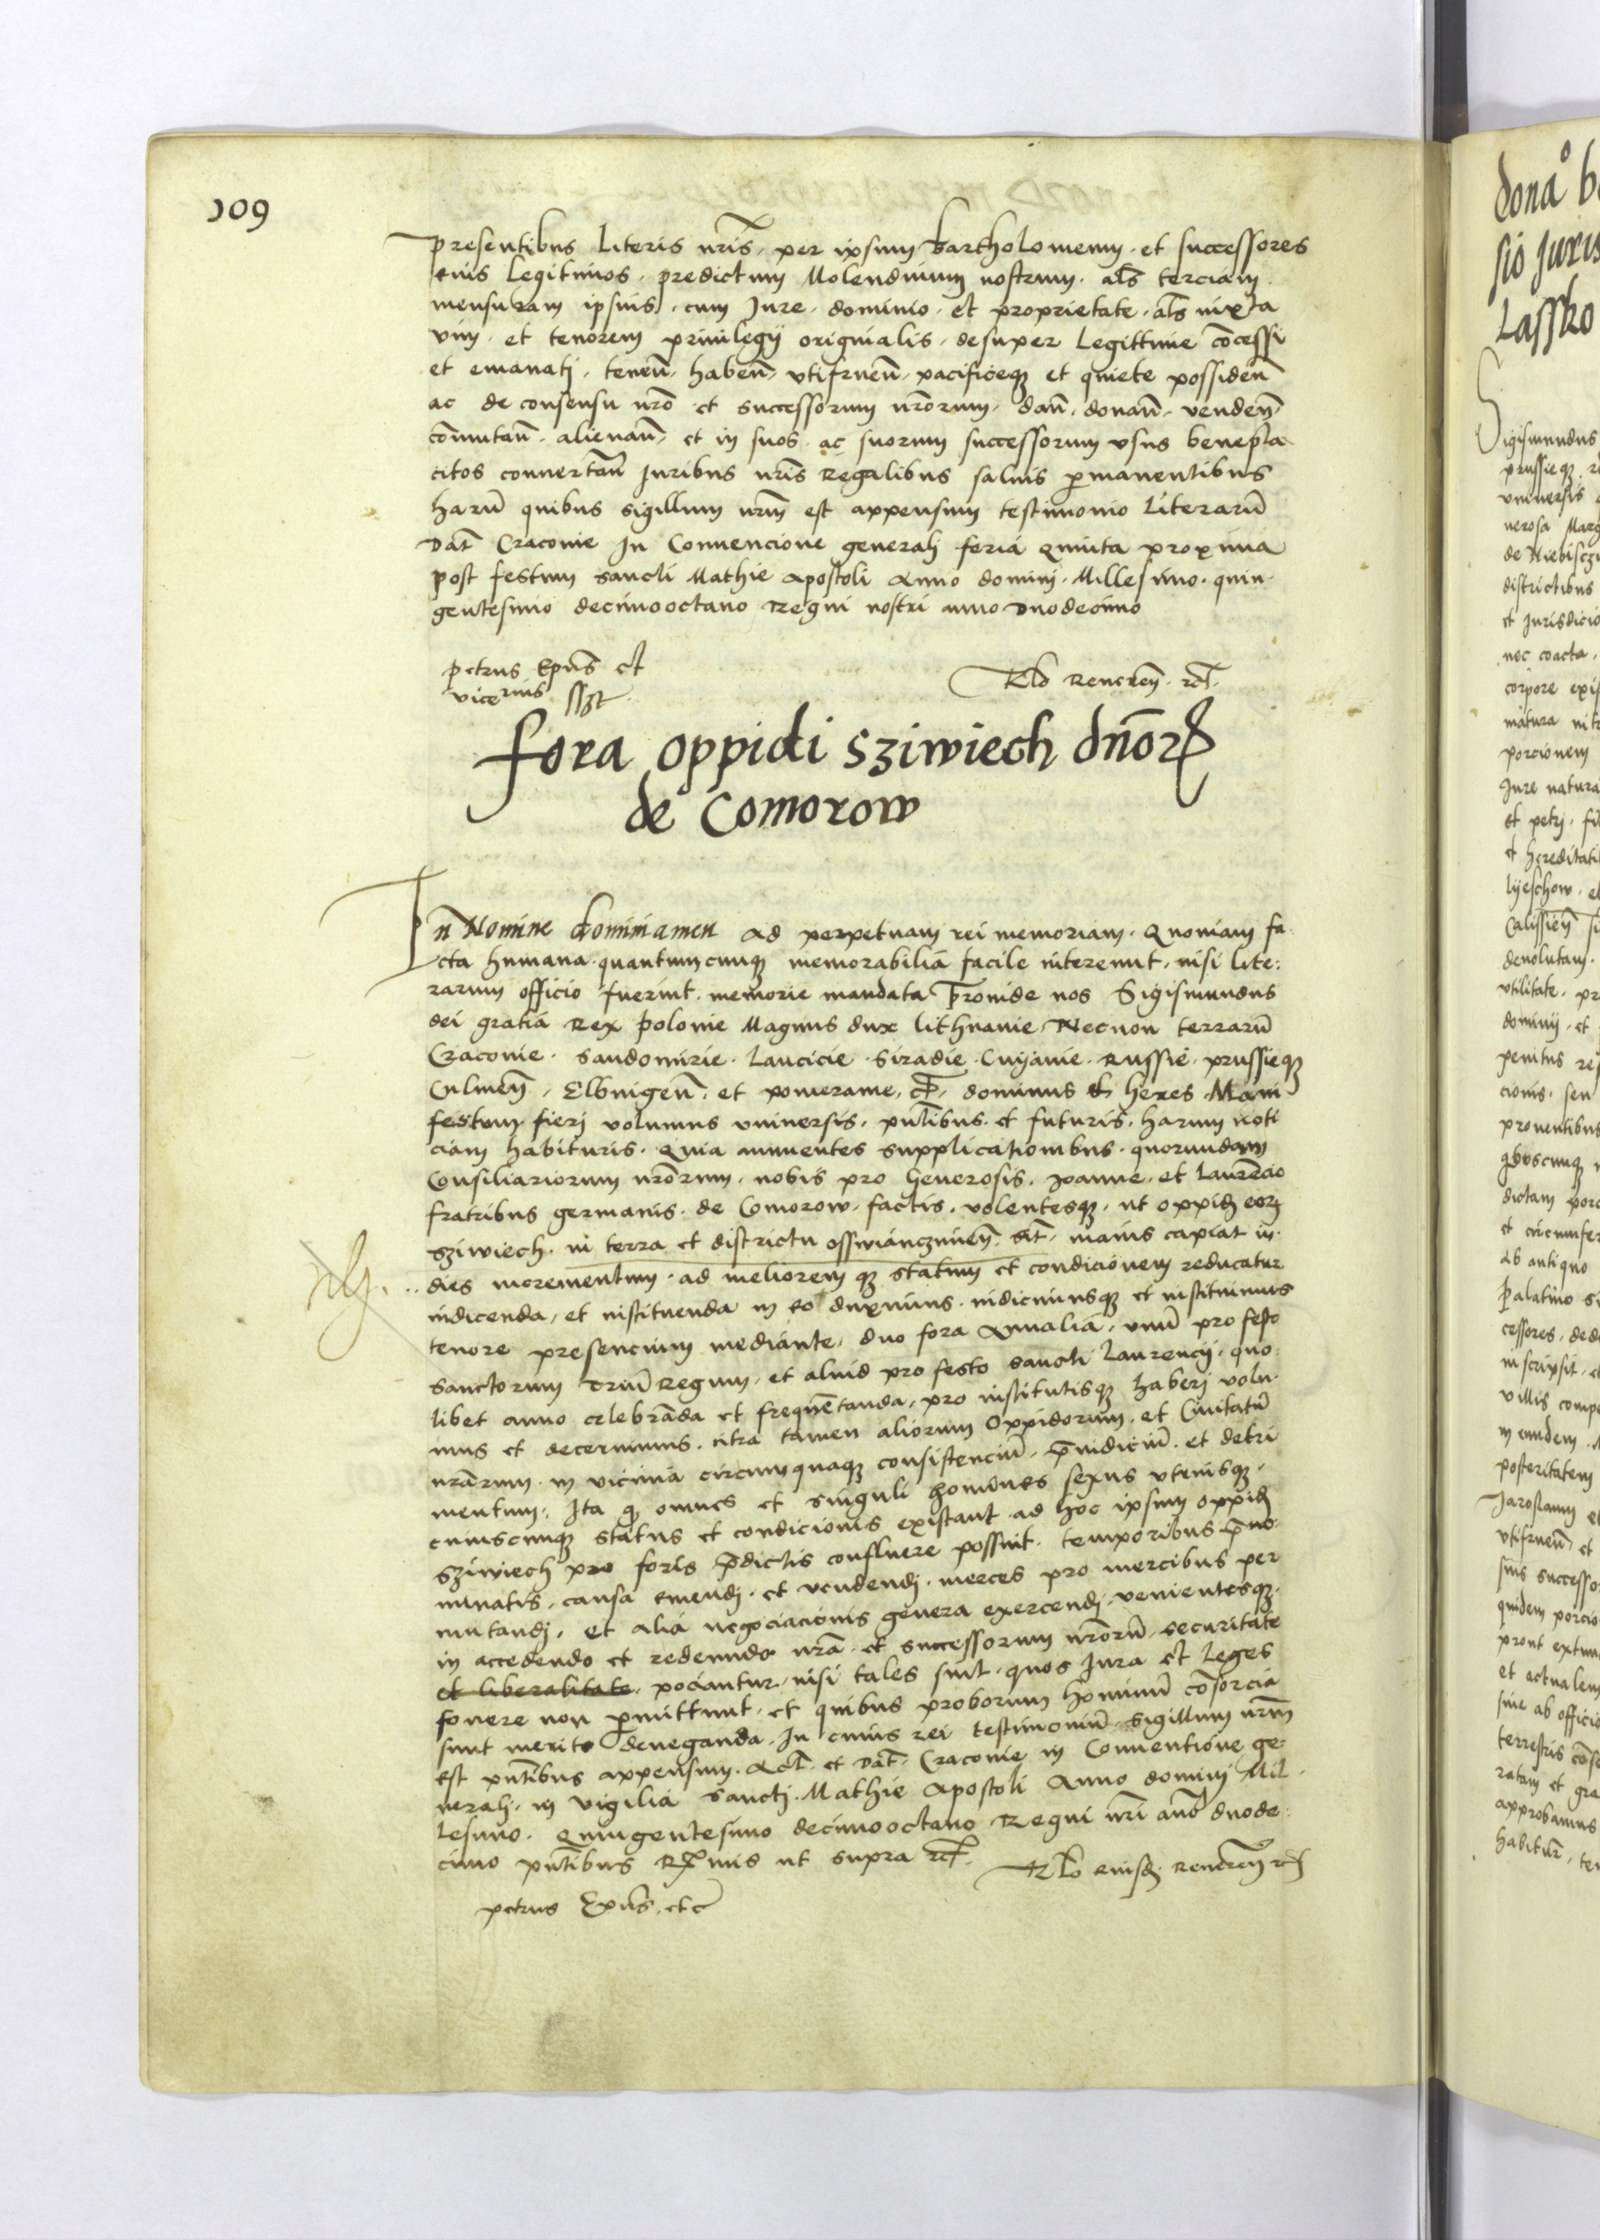 109
presentibus literis nr̄is, per ipsum Bartholomeum et successores
eius legitimos, predictum Molendinum nostrum, als terciam
mensuram ipsius, cum Jure, dominio et proprietate, als iuxta
vim et tenorem priuilegij originalis, desuper legittime cōcessi
et emanatj, tenen̄, haben̄, vtifruen̄, pacificeq₃ et quiete possiden̄
ac de consensu nr̄o et successorum nr̄orum, dan̄, donan̄, venden̄,
com̄utan̄, alienan̄, et in suos ac suorum successorum vsus benepla
citos conuertan̄ Juribus nr̄is Regalibus saluis p̄manentibus
harū quibus sigillum nr̄m est appensum testimonio literarū
Dat̄ Craconie In Conuencione generalj feria Quinta proxima
post festum sancti Mathie Apostoli Anno dominj Millesimo quin
gentesimo decimooctauo Regni nostri anno Duodecimo
petrus Ep̄us et
vicerius sszt
Rlo Reueren̄ rcl̄
Fora oppidi Sziwiech dn̄orꝝ
de Comorow
In Nomine domini amen Ad perpetuam rei memoriam. Quoniam fa
cta humana quantumcunq₃ memorabilia facile intereunt, nisi lite:
rarum officio fuerint memorie mandata Proinde nos Sigismundus
dei gratia Rex polonie Magnus dux lithuanie Necnon terrarū
Craconie. Sandomirie. Lancicie. Siradie. Cuyauie. Russie. prussieq₃
Culmen̄, Elbingen̄, et pomeranie, et̄c, dominus et heres. Mani
festum fierj volumus vniuersis, pn̄tibus et futuris, harum noti
ciam habituris. Quia annuentes supplicationibus quorundam
Consiliariorum nr̄orum, nobis pro Generosis, Joanne et Laurēcio
fratribus germanis de Comorow, factis, volentesq₃, ut oppid₃ eorꝝ
Sziwiech in terra et districtu osswianczimen̄ sit̄, maius capiat in
dies incrementum, ad meliorem q₃ statum et condicionem reducatur
indicenda, et instituenda in eo duximus, indicimusq₃ et instituimus
tenore presencium mediante, duo fora Annalia, vnū pro festo
sanctorum triū Regum, et aliud pro festo sancti Laurencij, quo
libet anno celebrāda et frequētanda, pro institutisq₃ haberj volu
mus et decernimus, citra tamen aliorum Oppidorum et Ciuitatū
nr̄arum in vicinia circumquaq₃ consistenciū, p̄iudiciū et detri
mentum, Ita q₃ omnes et singuli homines sexus vtriusq₃,
cuiuscunq₃ status et condicionis existant ad hoc ipsum oppid₃
Sziwiech pro foris p̄dictis confluere possint, temporibus p̄no
minatis, causa emendj, et vendendj, merces pro mercibus per
mutandj, et alia negociacionis genera exercendj, venientesq₃
in accedendo et redeundo nr̄a et successorum nr̄orū, securitate
et liberalitate, pociantur, nisi tales sint, quos Jura et Leges
fouere non p̄mittunt, et quibus proborum hominū cōsorcia
sunt merito deneganda. In cuius rei testimoniū, Sigillum nr̄m
est pn̄tibus appensum. Act̄ et Dat̄ Craconie in Conuentione ge
neralj, in vigilia Sanctj Mathie Apostoli Anno dominj Mil
lesimo Quingentesimo decimooctauo Regni nr̄i an̄o duode
cimo pn̄tibus Rx̄mis ut supra rcl̄
Rlo eiusd₃ Reueren̄ rcl̄
petrus Ep̄us, etc
donaō
sio Juris
Lassko
Sigismundus
prussieq₃
vniuersis
nerosa Marg
districtibus
et Jurisdicio
nec coacta,
corpore exi
matura
porcionem
Jure natura
et petrj,
et hereditati
Calissien̄
deuolutam
vtilitate, pr
dominij, et
penitus re
cionis, seu
prouentibus
dictam porc
et circumfer
Ab antiquo
Palatino
cessores, ded
inscripsit, et
villis comp
in eundem
posteritatem
Jaroslaum et
vtifruen̄, et
suis successo
quidem porcio
pront extun
et actualem
siue ab officio
terrestris cōse
ratam et gra
approbamus
habitur̄, te